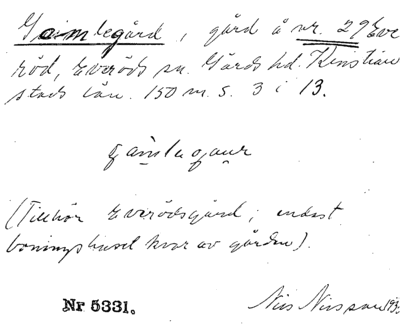 gård å nr. 29 Eve
röd, Everöds sn. Gärds hd. Kristian
stads län. 150 m. S. 3 i 13.
(Tillhör Everödsgård; endast
boningshuset kvar av gården).
Nr 5331. Nils Nilsson